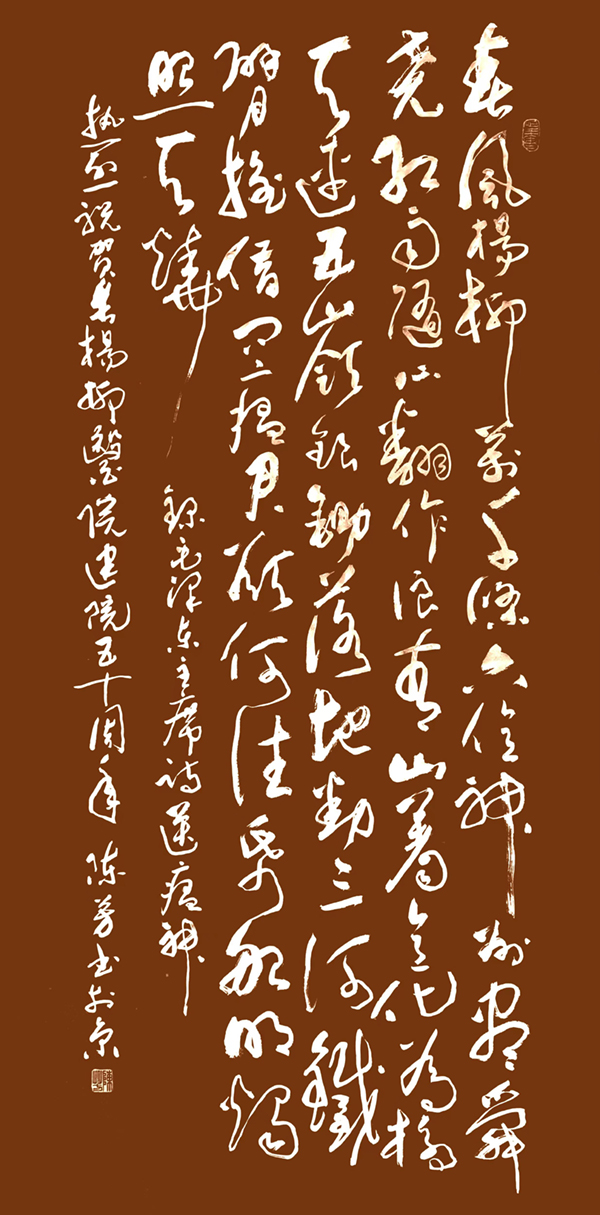 春風楊柳萬千條六億神州盡舜
堯紅雨隨心翻作浪青山著意化為橋
天連五嶺銀鋤落地動三河鐵
臂搖借問瘟君欲何往紙船明燭
照天燒
錄毛澤東主席詩送瘟神
热烈祝賀楊柳醫院建院五十周年 陳芳書於京